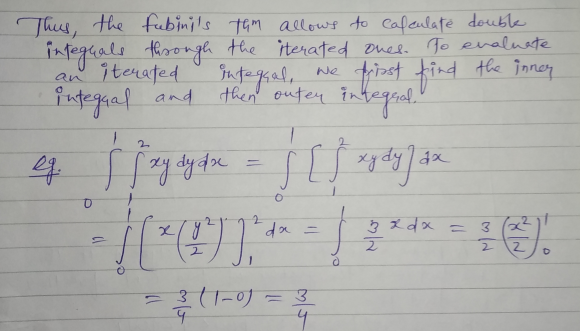 Thus, the fubini's thm allows to calculate double
integrals through the iterated ones. To evaluate
an iterated integral, we first find the inner
integral and then outer integral.
eg. ∫₀¹ ∫₁² xy dy dx = ∫₀¹ [ ∫₁² xy dy ] dx
= ∫₀¹ [ x (y²/2) ]₁² dx = ∫₀¹ 3/2 x dx = 3/2 (x²/2)₀¹
= 3/4 (1-0) = 3/4